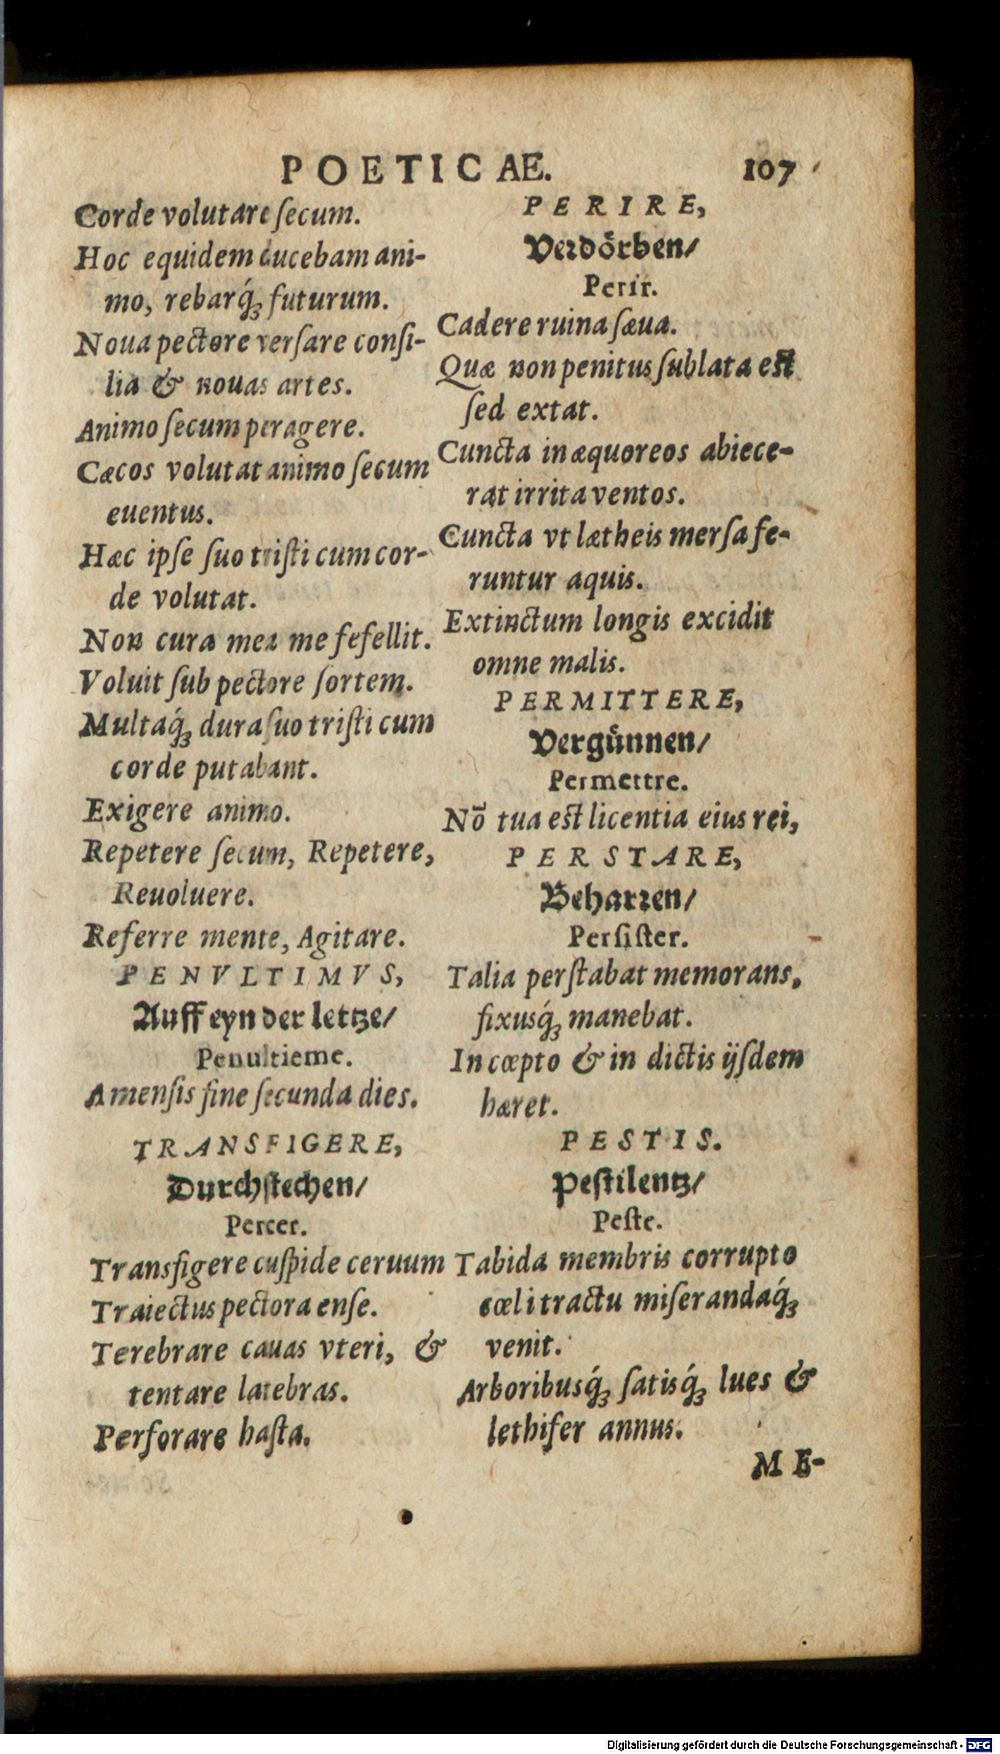 POETICAE. 107
Corde volutare ſecum.
Hoc equidem ducebam ani-
mo, rebarq́ꝫ futurum.
Noua pectore verſare conſi-
lia & nouas artes.
Animo ſecum peragere.
Cæcos volutat animo ſecum
euentus.
Hæc ipſe ſuo triſti cum cor-
de volutat.
Non cura mea me fefellit.
Voluit ſub pectore ſortem.
Multaq́ꝫ dura ſuo triſti cum
corde putabant.
Exigere animo.
Repetere ſecum, Repetere,
Reuoluere.
Referre mente, Agitare.
PENVLTIMVS,
Auff eyn der lettze/
Penultieme.
A menſis fine ſecunda dies.
TRANSFIGERE,
Durchſtechen/
Percer.
Transfigere cuſpide ceruum
Traiectus pectora enſe.
Terebrare cauas vteri, &
tentare latebras.
Perforare haſta.
PERIRE,
Verdoͤrben/
Perir.
Cadere ruina ſæua.
Quæ non penitus ſublata eſt
ſed extat.
Cuncta in æquoreos abiece-
rat irrita ventos.
Cuncta vt lætheis merſa fe-
runtur aquis.
Extinctum longis excidit
omne malis.
PERMITTERE,
Verguͤnnen/
Permettre.
Nō tua eſt licentia eius rei,
PERSTARE,
Beharren/
Perſiſter.
Talia perſtabat memorans,
fixusq́ꝫ manebat.
In cœpto & in dictis ijſdem
hæret.
PESTIS.
Peſtilentz/
Peſte.
Tabida membris corrupto
cœli tractu miſerandaq́ꝫ
venit.
Arboribusq́ꝫ ſatisq́ꝫ lues &
lethifer annus.
ME-
Digitalisierung gefördert durch die Deutsche Forschungsgemeinschaft - DFG